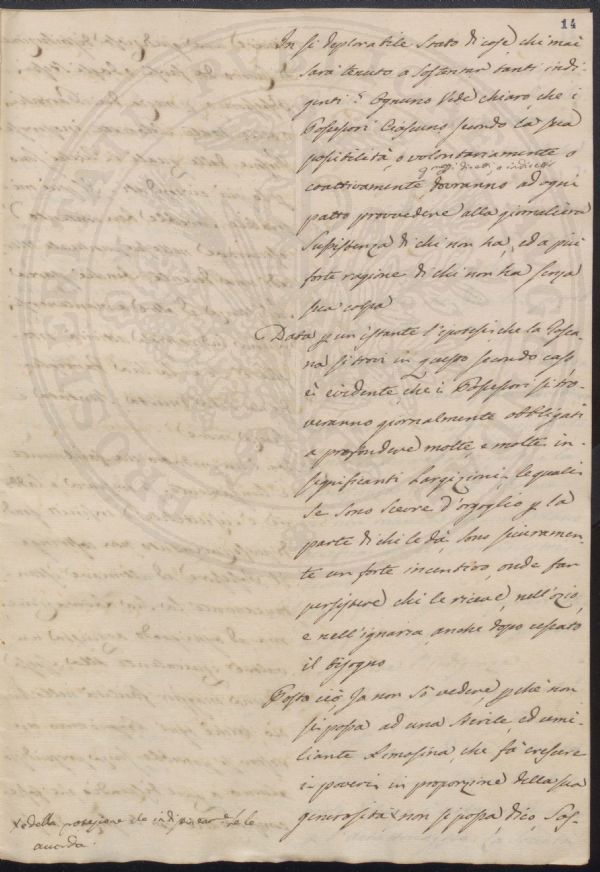 14
In sì deplorabile Stato di cose chi mai
sarà tenuto a sostentar tanti indi-
genti? Ognuno vede chiaro, che i
Possessori Ciascuno secondo la sua
possibilità, o volontariamente o
per mezzi diretti, o indiretti
coattivamente dovranno ad ogni
patto provvedere alla giornaliera
Sussistenza di chi non ha, ed a più
forte ragione di chi non ha senza
sua colpa
Data p un istante l'ipotesi, che la Tosca-
na si trovi in questo secondo caso
è evidente, che i Possessori si tro-
veranno giornalmente obbligati
a profondere molte, e molte in-
significanti Largizioni, le quali
se sono scevre d'orgoglio p la
parte di chi le dà, sono sicuramen-
te un forte incentivo, onde far
persistere chi le riceve nell'ozio,
e nell'ignavia anche dopo cessato
il bisogno
Posto ciò, Io non sò vedere p chè non
si possa ad una sterile, ed umi-
liante Limosina, che fà crescere
i poveri in proporzione della sua
generosità x non si possa, dico, Sos-
x e della protezione che
accorda.